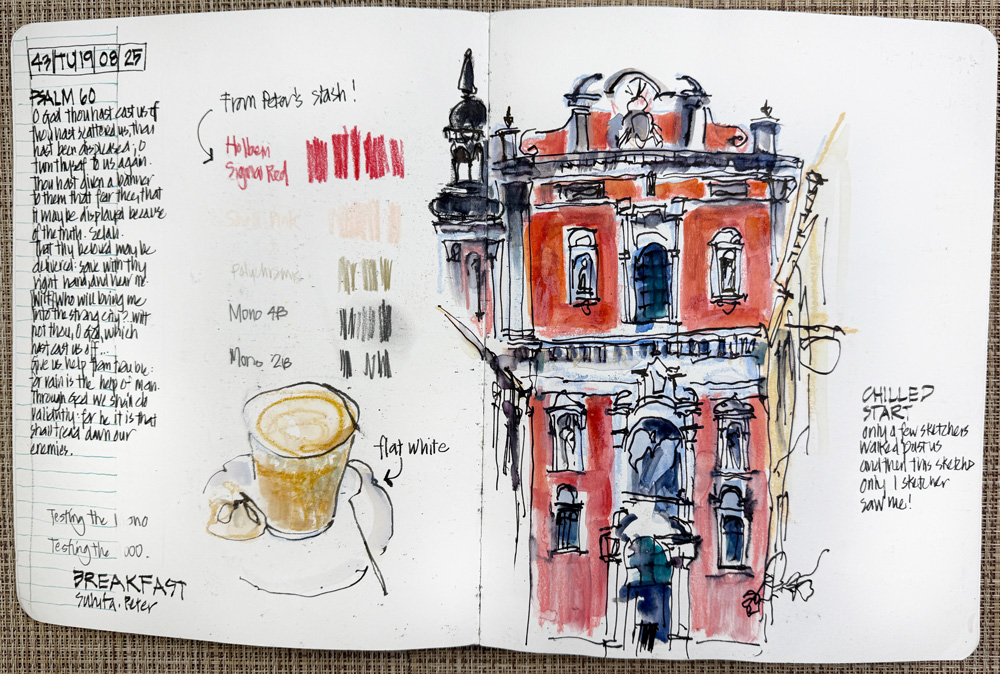 43 TU 19 08 25
PSALM 60
O God thou hast cast us off
thou hast scattered us, thou
hast been displeased; O
turn thyself to us again.
Thou hast given a banner
to them that fear thee, that
it may be displayed because
of the truth. Selah.
That thy beloved may be
delivered: save with thy
right hand, and hear me.
who will bring me
into the strong city? wilt
not thou, O God, which
hast cast us off...
Give us help from trouble:
for vain is the help of man.
Through God we shall do
valiantly: for he it is that
shall tread down our
enemies.
Testing the
Testing the
BREAKFAST
Peter
From Peter's stash!
Holbein
Signal Red
Shell Pink
polychromos
Mono 4B
Mono 2B
flat white
CHILLED
START
only a few sketchers
walked past us
and then this sketch
only 1 sketcher
saw me!